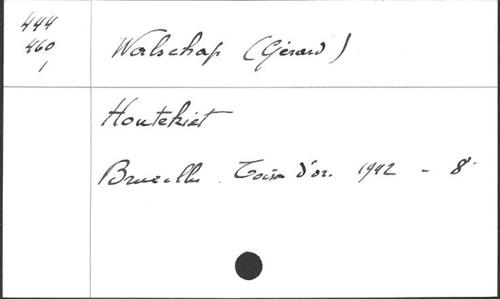 444
460
1
Walschap (Gérard)
Houtekiet
Bruxelles. Toison d'or. 1942 - 8°